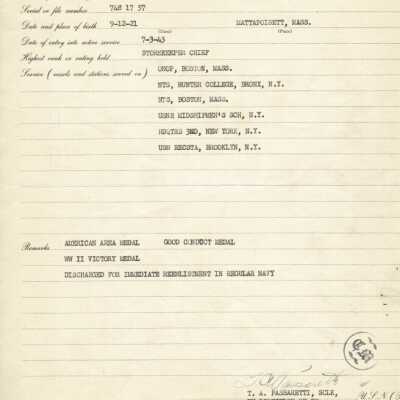 Serial or file number 748 17 57
Date and place of birth 9-12-21 MATTAPOISETT, MASS.
(Date) (Place)
Date of entry into active service 7-3-43
Highest rank or rating held STOREKEEPER CHIEF
Service (vessels and stations served on) ONOP, BOSTON, MASS.
NTS, HUNTER COLLEGE, BRONX, N.Y.
NTS, BOSTON, MASS.
USNR MIDSHIPMEN'S SCH, N.Y.
HDQTRS 3ND, NEW YORK, N.Y.
USN RECSTA, BROOKLYN, N.Y.
Remarks AMERICAN AREA MEDAL GOOD CONDUCT MEDAL
WW II VICTORY MEDAL
DISCHARGED FOR IMMEDIATE REENLISTMENT IN REGULAR NAVY
T. A. PASSARETTI, SCLK,
U.S.N.